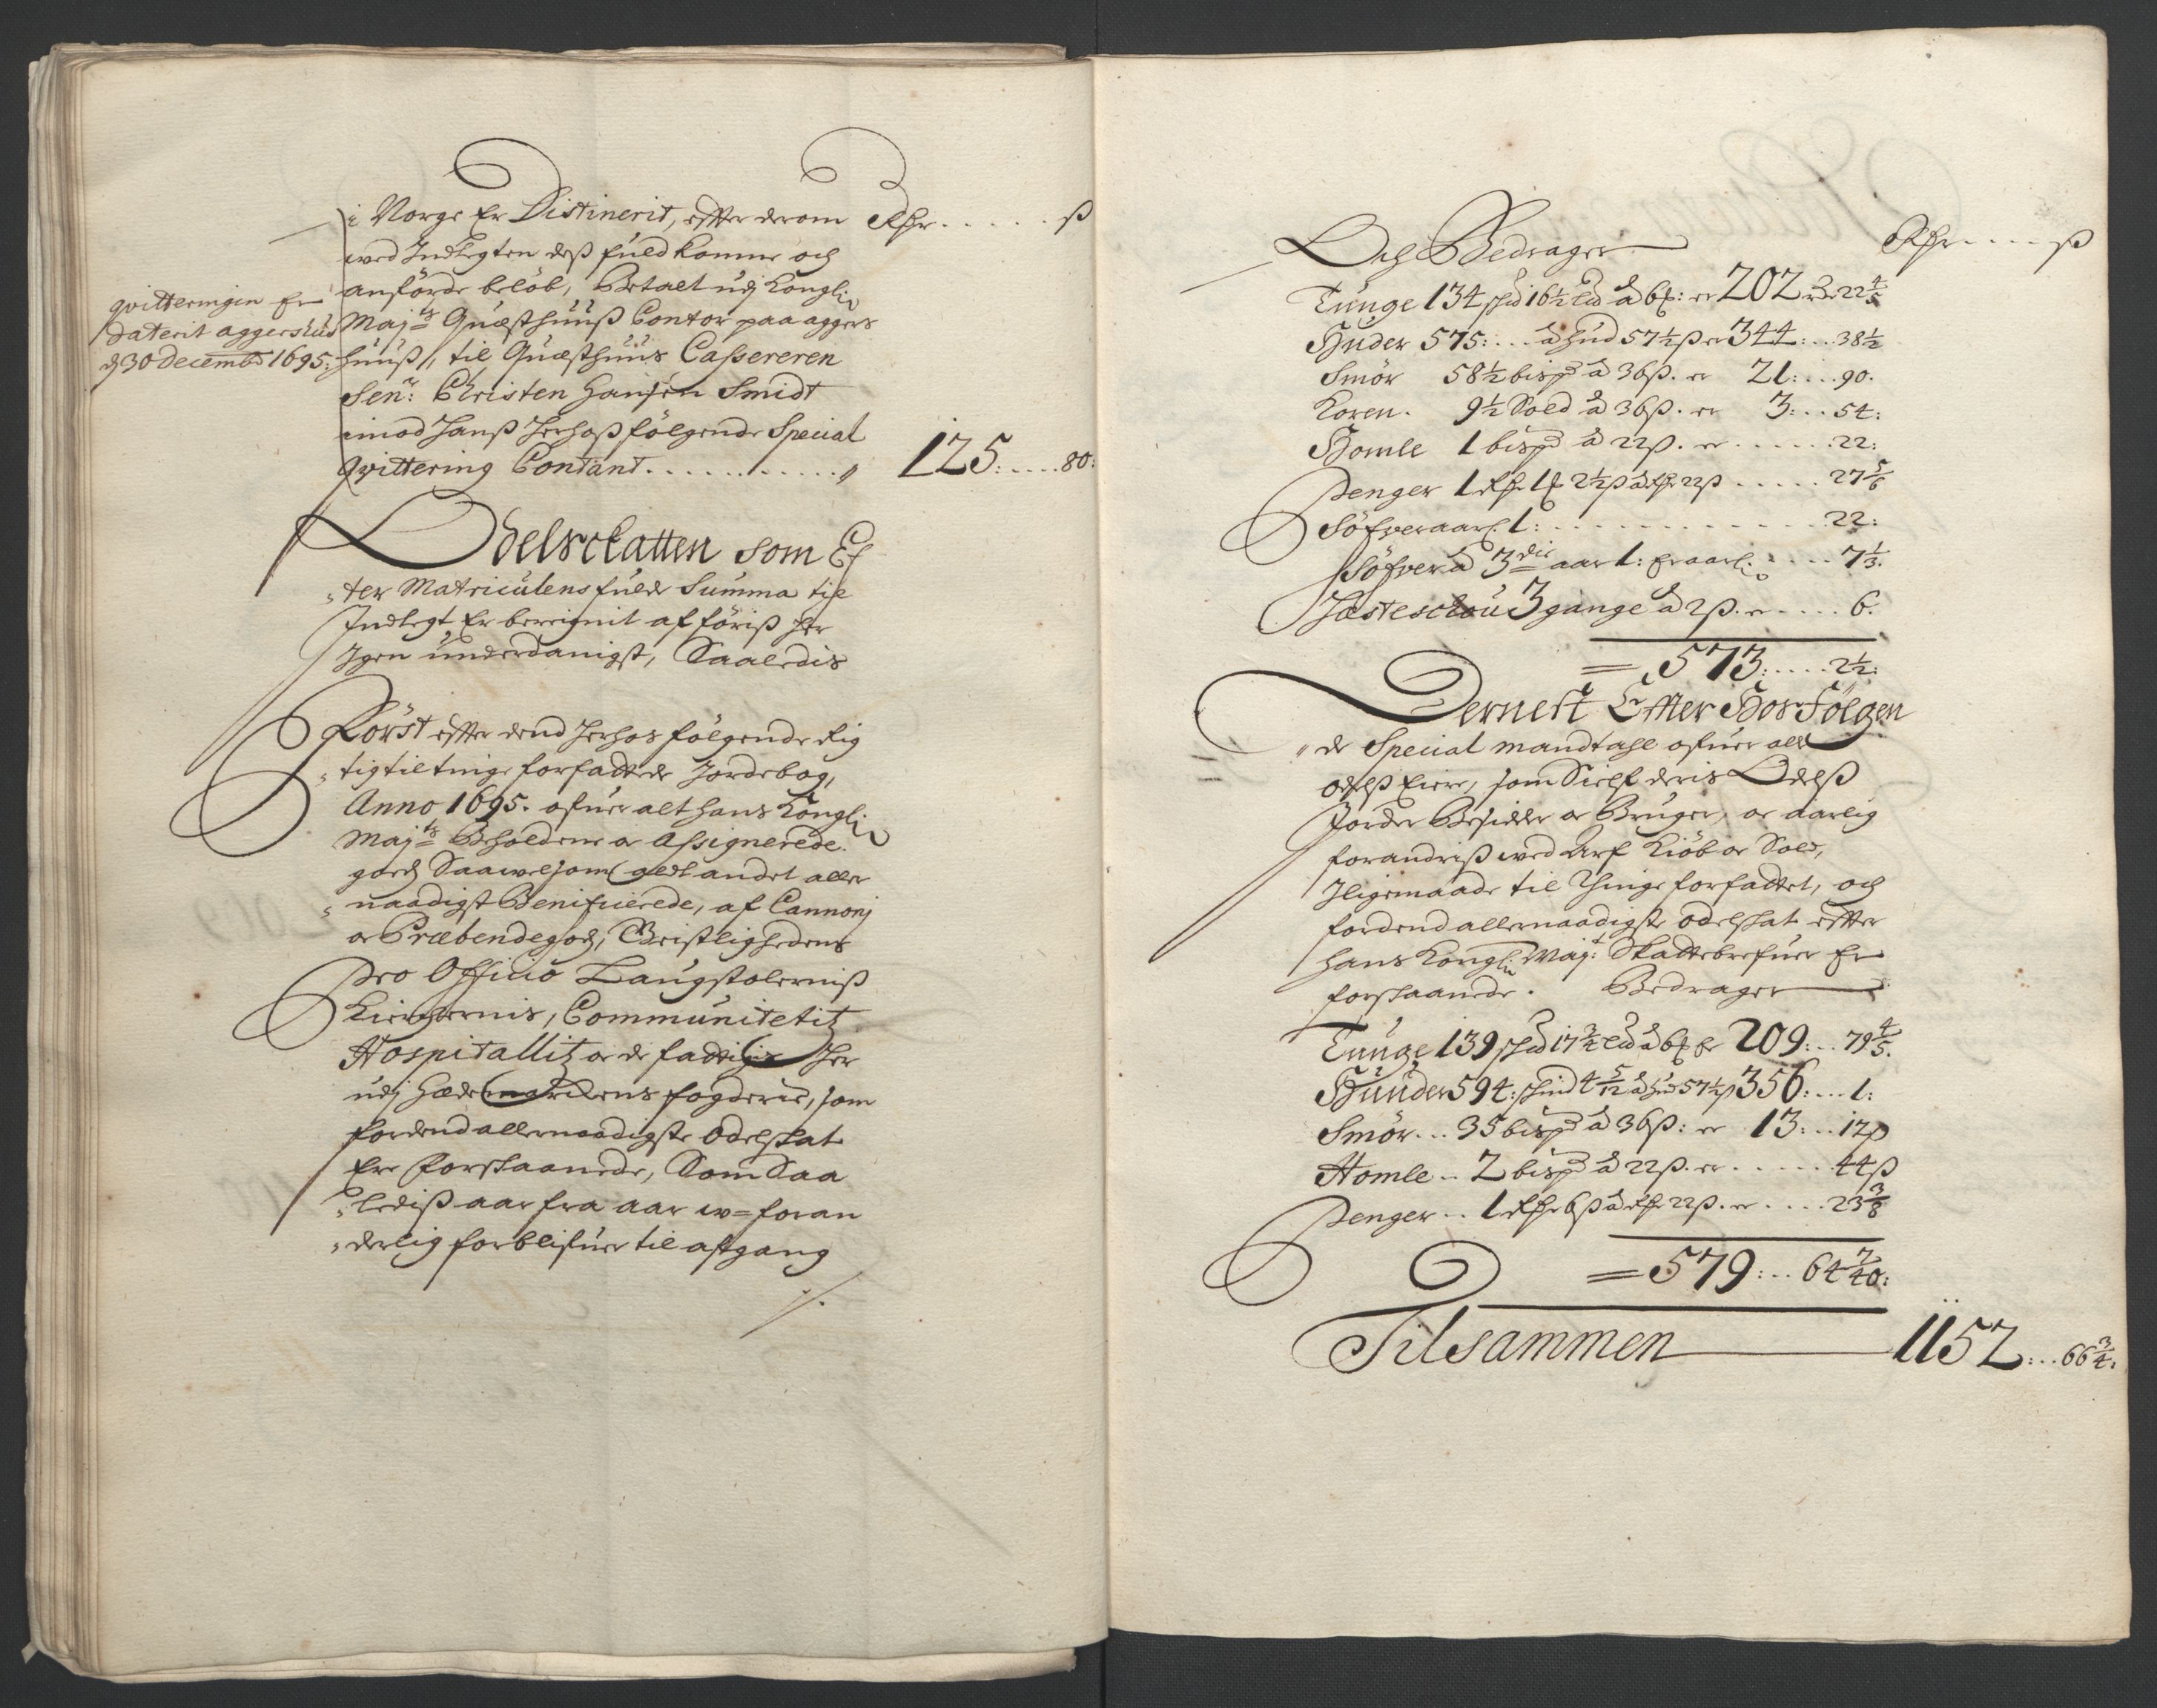 i Norge Er Distinerit, effter derom Rdr ..... ß
wed Indlegten dess fuldkomne och
anförde beløb, Betalt udj Konglig
Majts Quæsthuuß Contor paa aggers
huuß, til Quæsthuus Cassereren
Senr: Christen Hansen Smidt
imod Hanß Herhoß følgende Special
Qvittering Contant ........... 125: .... 80:
qvitteringen Er
daterit aggershuus
d 30 decembr 1695:
Odelsskatten som Ef
ter Matriculens fulde Summa til
Indtegt Er bereignit af föriß her
Igen underdanigst, Saaledis
Först effter dend herhos følgende Rig
tig til tinge forfattede Jordebog,
Anno 1695. ofuer alt hans Konglig
Majts Beholdene oc Assignerede
godß Saawelsom alt andet aller
naadigst Benificierede, af Cannonj
oc Præbendegodß, Geistlighedens
pro Officio Laugstolerniß
Kircherniß, Communitetitz
Hospitallitz oc de fattigis her
udj Hædemarkens fogderie, som
fordend allernaadigste Odelskat
Ere forskaanede, Som Saa
lediß aar fra aar w=foran
derlig forblifuer til afgang
Och Bedrager Rdr .... ß
Tunge 134 skd 16½ Ld â 6ß: er 202 rdr 22⅘
Huder 575: ... â hud 57½ß er 344: .. 38½
Smör 58½ bispd â 36ß. er 21: ... 90.
Koren. 9½ Sold â 36ß. er 3: .. 54:
Homle 1 bispd â 22ß. er ..... 22:
Penger 1 Rdr 1 ß 2½ß â Rdr 22ß ..... 27⅚
Söfver aarl. 1: ........... 22:
Söfver â 3die aar 1: Er aarl: .... 7⅓.
Hæsteschou 3 gange â 2ß. er .... 6.
= 573: .... 2½:
Dernest Effter Hos Følgen
de Special mandtahl ofuer alle
odelß Eiere, som Sielf deris Odelß
Jorder Besidder oc Bruger, oc aarlig
forandriß wed Arf Kiöb oc Sald,
Iligemaade til Thinge forfattet, och
fordend allernaadigste odelskat effter
hans Konglig Majt: Skattebrefuer Er
forskaanede. Bedrager
Tunge 139 skd 17¾ Ld â 6ß Er 209: .. 79⅘.
Huuder 594: skind 4 5/12 â hud 57½ß 356: ... 1:
Smör ... 35 bispd â 36ß: er 13: .. 12ß
Homle .. 2 bispd â 22ß. er ..... 44ß
Penger .. 1 Rdr 6ß â Rdr 22ß. er .... 23⅜
= 579: .. 64 7/40:
Tilsammen 1152: .. 66¾: